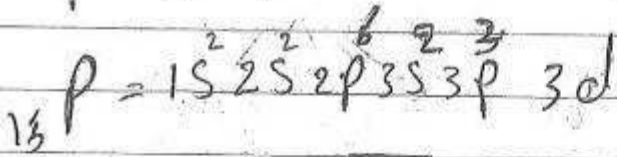 ₁₅P = 1s² 2s² 2p⁶ 3s² 3p³ 3d